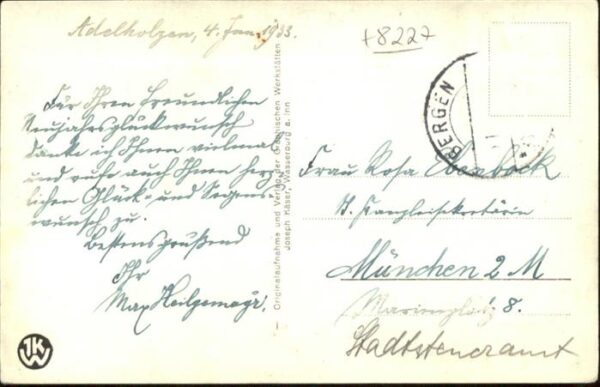 Adelholzen, 4. Jan. 1933.
+8227
Für Ihren freundlichen
Neujahrsglückwunsch
danke ich Ihnen vielmals
und rufe auch Ihnen herz-
lichen Glück- und Segens-
wunsch zu.
Bestens grüßend
Ihr
Max
— Originalaufnahme und Verlag der Graphischen Werkstätten —
Joseph Käser, Wasserburg a. Inn
BERGEN
Frau Rosa
Kanzleisekretärin
München 2 M
Marienplatz 8.
Stadtsteueramt
JKW